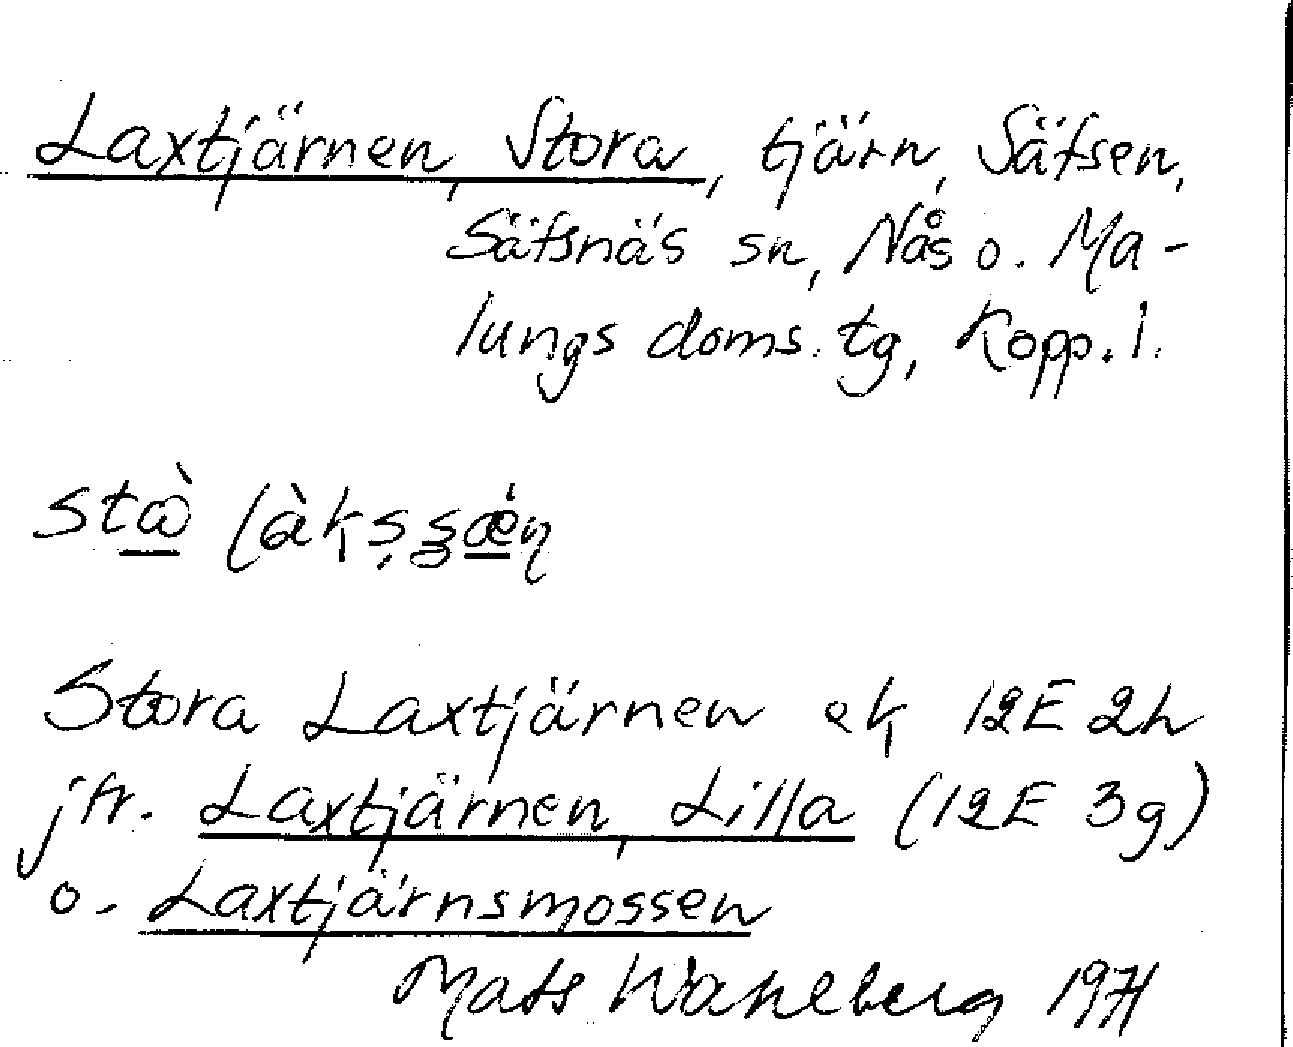 Laxtjärnen, Stora, tjärn, Säfsen,
Säfsnäs sn, Nås o. Ma-
lungs doms. tg, Kopp. l.
Stora Laxtjärnen ek 12E 2h
jfr. Laxtjärnen, Lilla (12E 3g)
o. Laxtjärnsmossen
Mats Wahlberg 1971